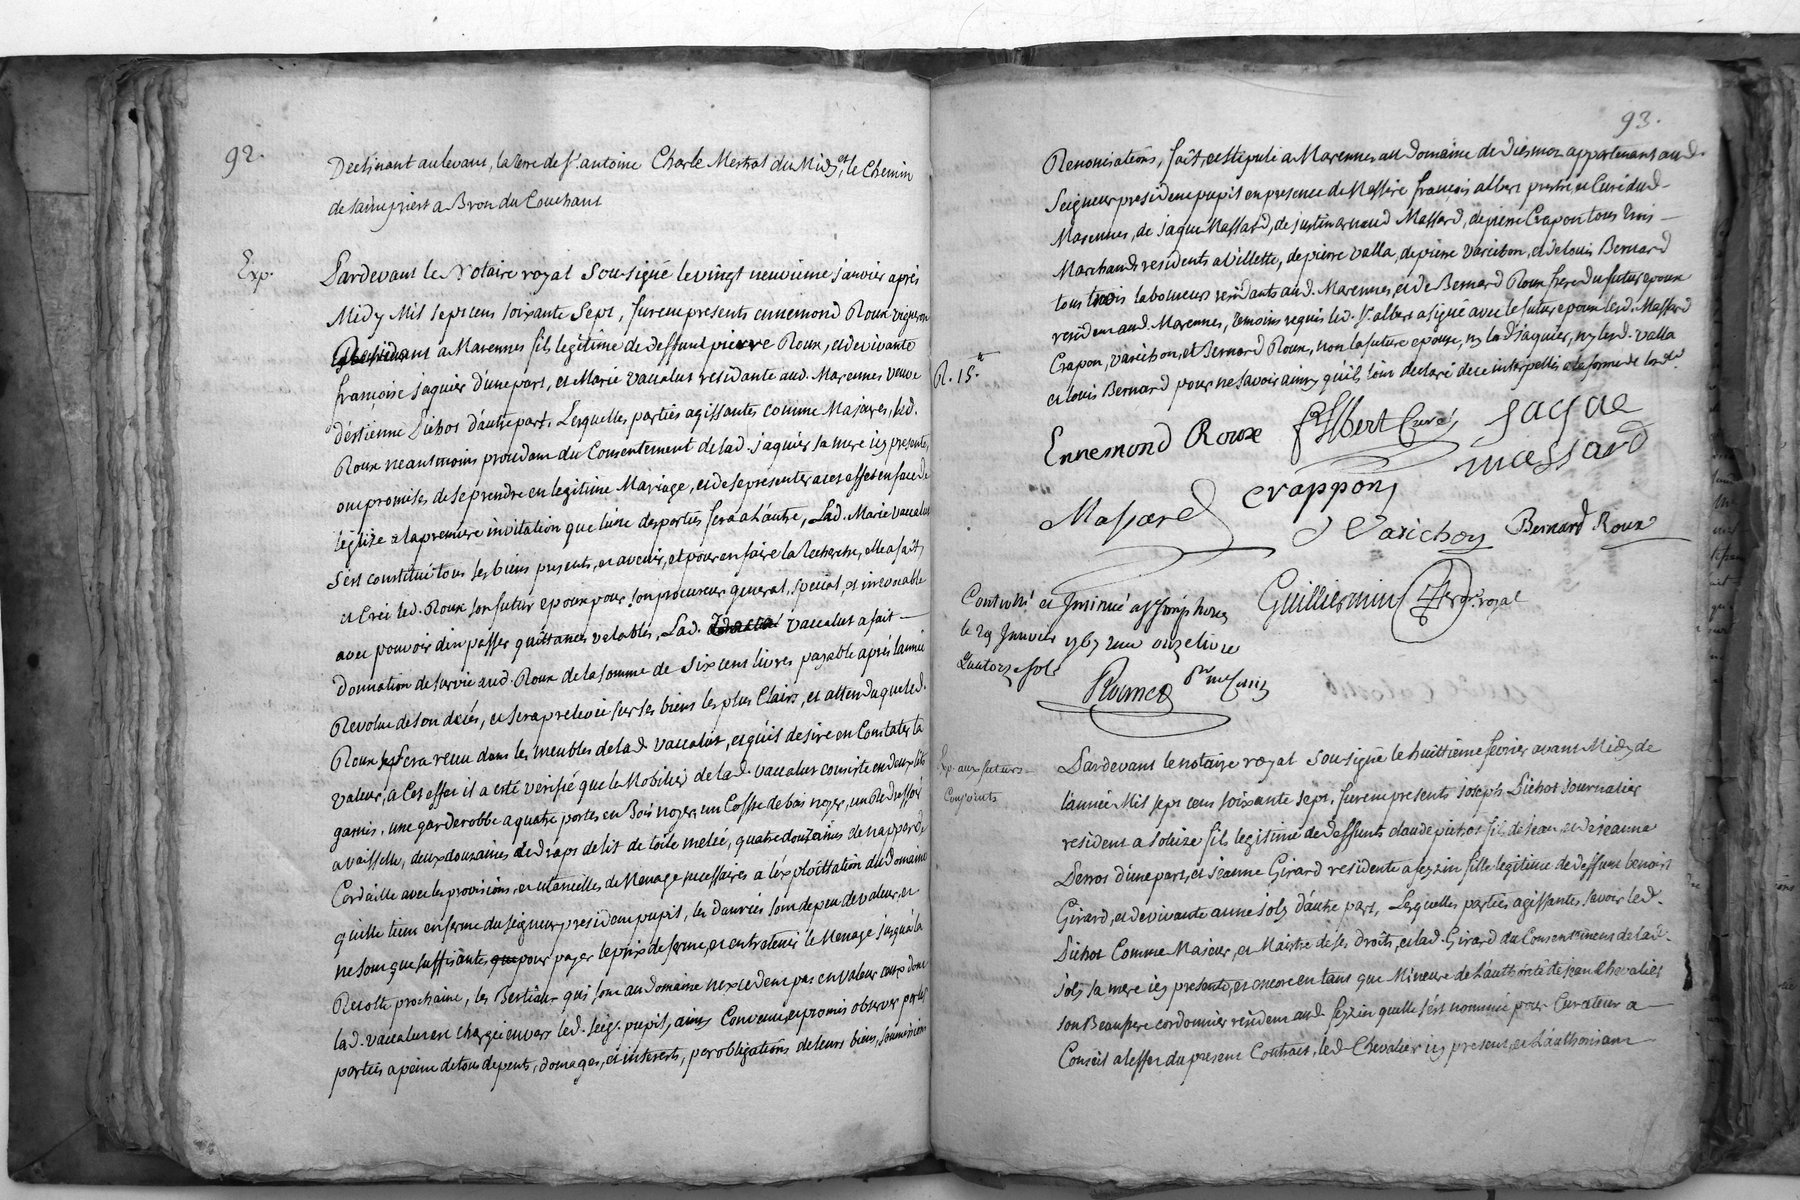 92.
Declinant au levant, la terre de sr. antoine Charle Mestral du Midy, et le Chemin
de saint priest a Bron du Couchant
Exp.
Pardevant le Notaire royal Sousigné le vingt neuvieme janvier aprés
Midy Mil sept cens soixante sept, furent presents ennemond Roux vigneron
residant a Marennes fils legitime de deffunt pierre Roux, et de vivante
françoise jaquier d'une part, et Marie vaccalut residante aud. Marennes veuve
d'estienne Pichot d'autre part, Lesquelles parties agissantes comme Majeures, led.
Roux neantmoins proudant du Consentement de lad. jaquier sa mere icy presente,
ont promis de se prendre en legitime Mariage, et de se presenter a cet effet en face de
l'église a la premiere invitation que l'une des parties fera a l'autre, Lad. Marie vaccalut
s'est constitué tous ses biens presents, et avenir, et pour en faire la Recherche, elle a fait,
et Créé led. Roux son futur epoux pour son procureur general, special, et irrevocable
avec pouvoir d'en passer quittances valables, Lad. vaccalut a fait
donnation de survie aud. Roux de la somme de Six cent livres payable aprés l'année
Revolue de son decés, et sera prelevée sur ses biens les plus Clairs, et attendu que led.
Roux sera reçu dans les meubles de lad. vaccalut, et qu'il desire en Constater la
valeur, a Cet effet il a esté verifié que le Mobilier de lad. vaccalut consiste en deux lits
garnis, une garderobbe a quatre portes en Bois noyer, un Coffre de bois noyer, un
a vaisselle, deux douzaines de draps de lit de toile melée, quatre douzaines de nappes de
Cordaille avec les provisions, et utancilles de Menage necessaires a l'exploittation du domaine
qu'elle tient en ferme du seigneur president pupil, les danrées sont de peu de valeur, et
ne sont que suffisantes pour payer le prix de ferme, et entretenir le Menage jusqu'a la
Recolte prochaine, les Bestiaux qui sont au domaine n'excedent pas en valeur ceux dont
lad. vaccalut en chargée envers led. seigr. pupil, ainsy Convenu, et promis observer par les
parties a peine de tous depents, domages, et interets, par obligations de leurs biens, soumissions
93.
Renonciations, fait et stipulé a Marennes au domaine de Diemoz appartenant aud.
Seigneur president pupil en presence de Messire françois albert prestre, et Curé dud.
Marennes, de jaque Massard, de justin arnaud Massard, de pierre Crapon tous trois
Marchands residents a villette, de pierre valla, de pierre varichon, et de louis Bernard
tous trois laboureurs residants aud. Marennes, et de Bernard Roux frere du futur epoux
resident aud. Marennes, temoins requis led. sr. albert a signé avec le futur epoux led. Massard
Crapon, varichon, et Bernard Roux, non la future epouse, ny lad. jaquier, ny led. valla
et louis Bernard pour ne savoir ainsy qu'ils l'ont declaré de ce interpellés a la forme de l'ordce.
R. 15.
Ennemond Roux f. Albert Curé jaque
massard
Massard crappon
P Varichon Bernard Roux
Guilliermin Nore. royal
Controllé et Insinué a st Simphorien
le 29 Janvier 1767 reçu onze livres
Quatorze sols
Exp. aux futurs
Conjoints
Pardevant le notaire royal sousigné le huittieme fevrier avant Midy de
l'année Mil sept cens soixante sept, furent presents joseph Pichot journalier
resident a solaize fils legitime de deffunts claude pichot fils de jean, et de jeanne
Derros d'une part, et jeanne Girard residente a feyzin fille legitime de deffunt benoist
Girard, et de vivante anne joly d'autre part, Lesquelles parties agissantes savoir led.
Pichot Comme Majeur, et Maistre de ses droits, et lad. Girard du Consentement de lad.
joly sa mere icy presente, et encore en tant que Mineure de l'authorité de jean Chevalier
son Beaupere cordonnier resident aud. feyzin qu'elle s'est nommée pour Curateur a
Conseil a l'effet du present Contrat, led. Chevalier icy present, et l'authorisant